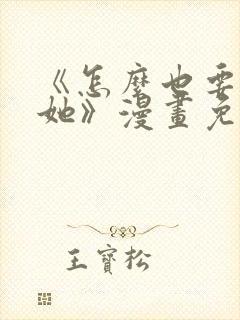 《怎麼也要
她》漫畫免
王寶松